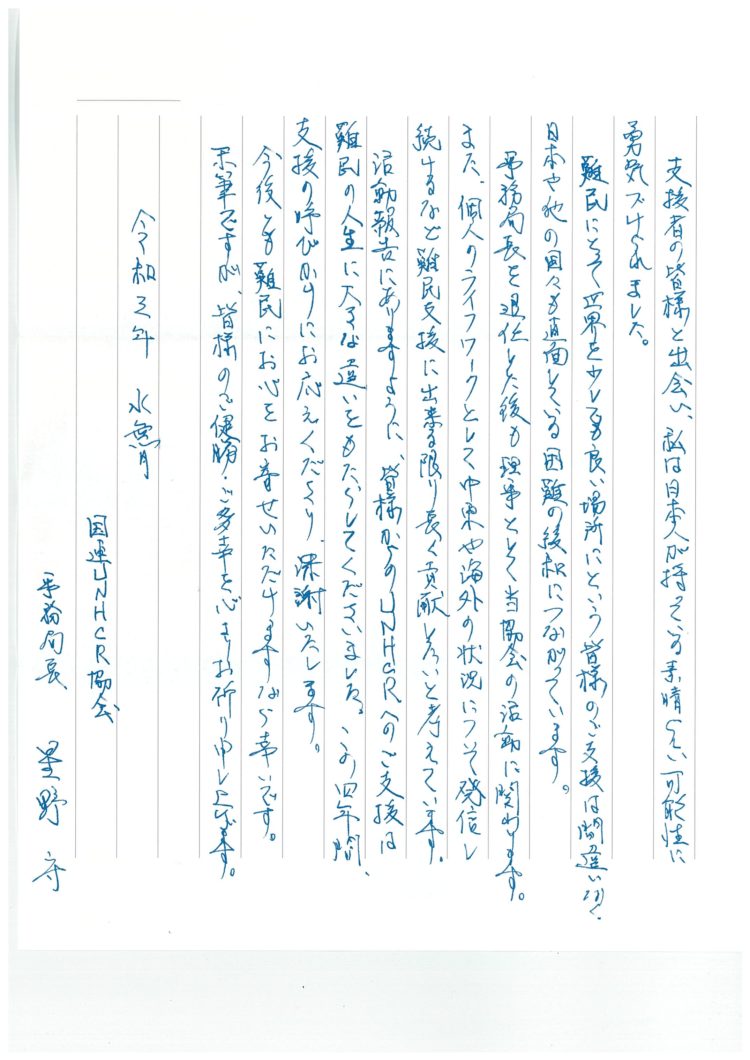 支援者の皆様と出会い、私は日本人が持っている素晴らしい可能性に
勇気づけられました。
難民にとって世界を少しでも良い場所にという皆様のご支援は間違いなく
日本や他の国々も直面している困難の緩和につながっています。
事務局長を退任した後も理事として当協会の活動に関わります。
また、個人のライフワークとして中東や海外の状況について発信し
続けるなど難民支援に出来る限り長く貢献したいと考えています。
活動報告にありますように、皆様からのUNHCRへのご支援は
難民の人生に大きな違いをもたらしてくださいました。この四年間、
支援の呼びかけにお応えくださり、深謝いたします。
今後とも難民にお心をお寄せいただけますなら幸いです。
末筆ですが、皆様のご健勝・ご多幸を心よりお祈り申し上げます。
令和三年 水無月
国連UNHCR協会
事務局長 星野 守